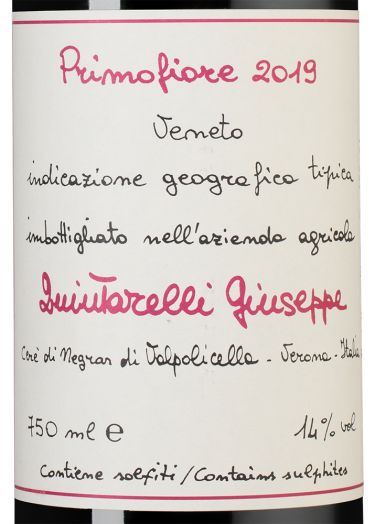 Primofiore 2019
Veneto
indicazione geografica tipica
imbottigliato nell'azienda agricola
Quintarelli Giuseppe
Cerè di Negrar di Valpolicella - Verona - Italia
750 ml e
14% vol
Contiene solfiti / Contains sulphites